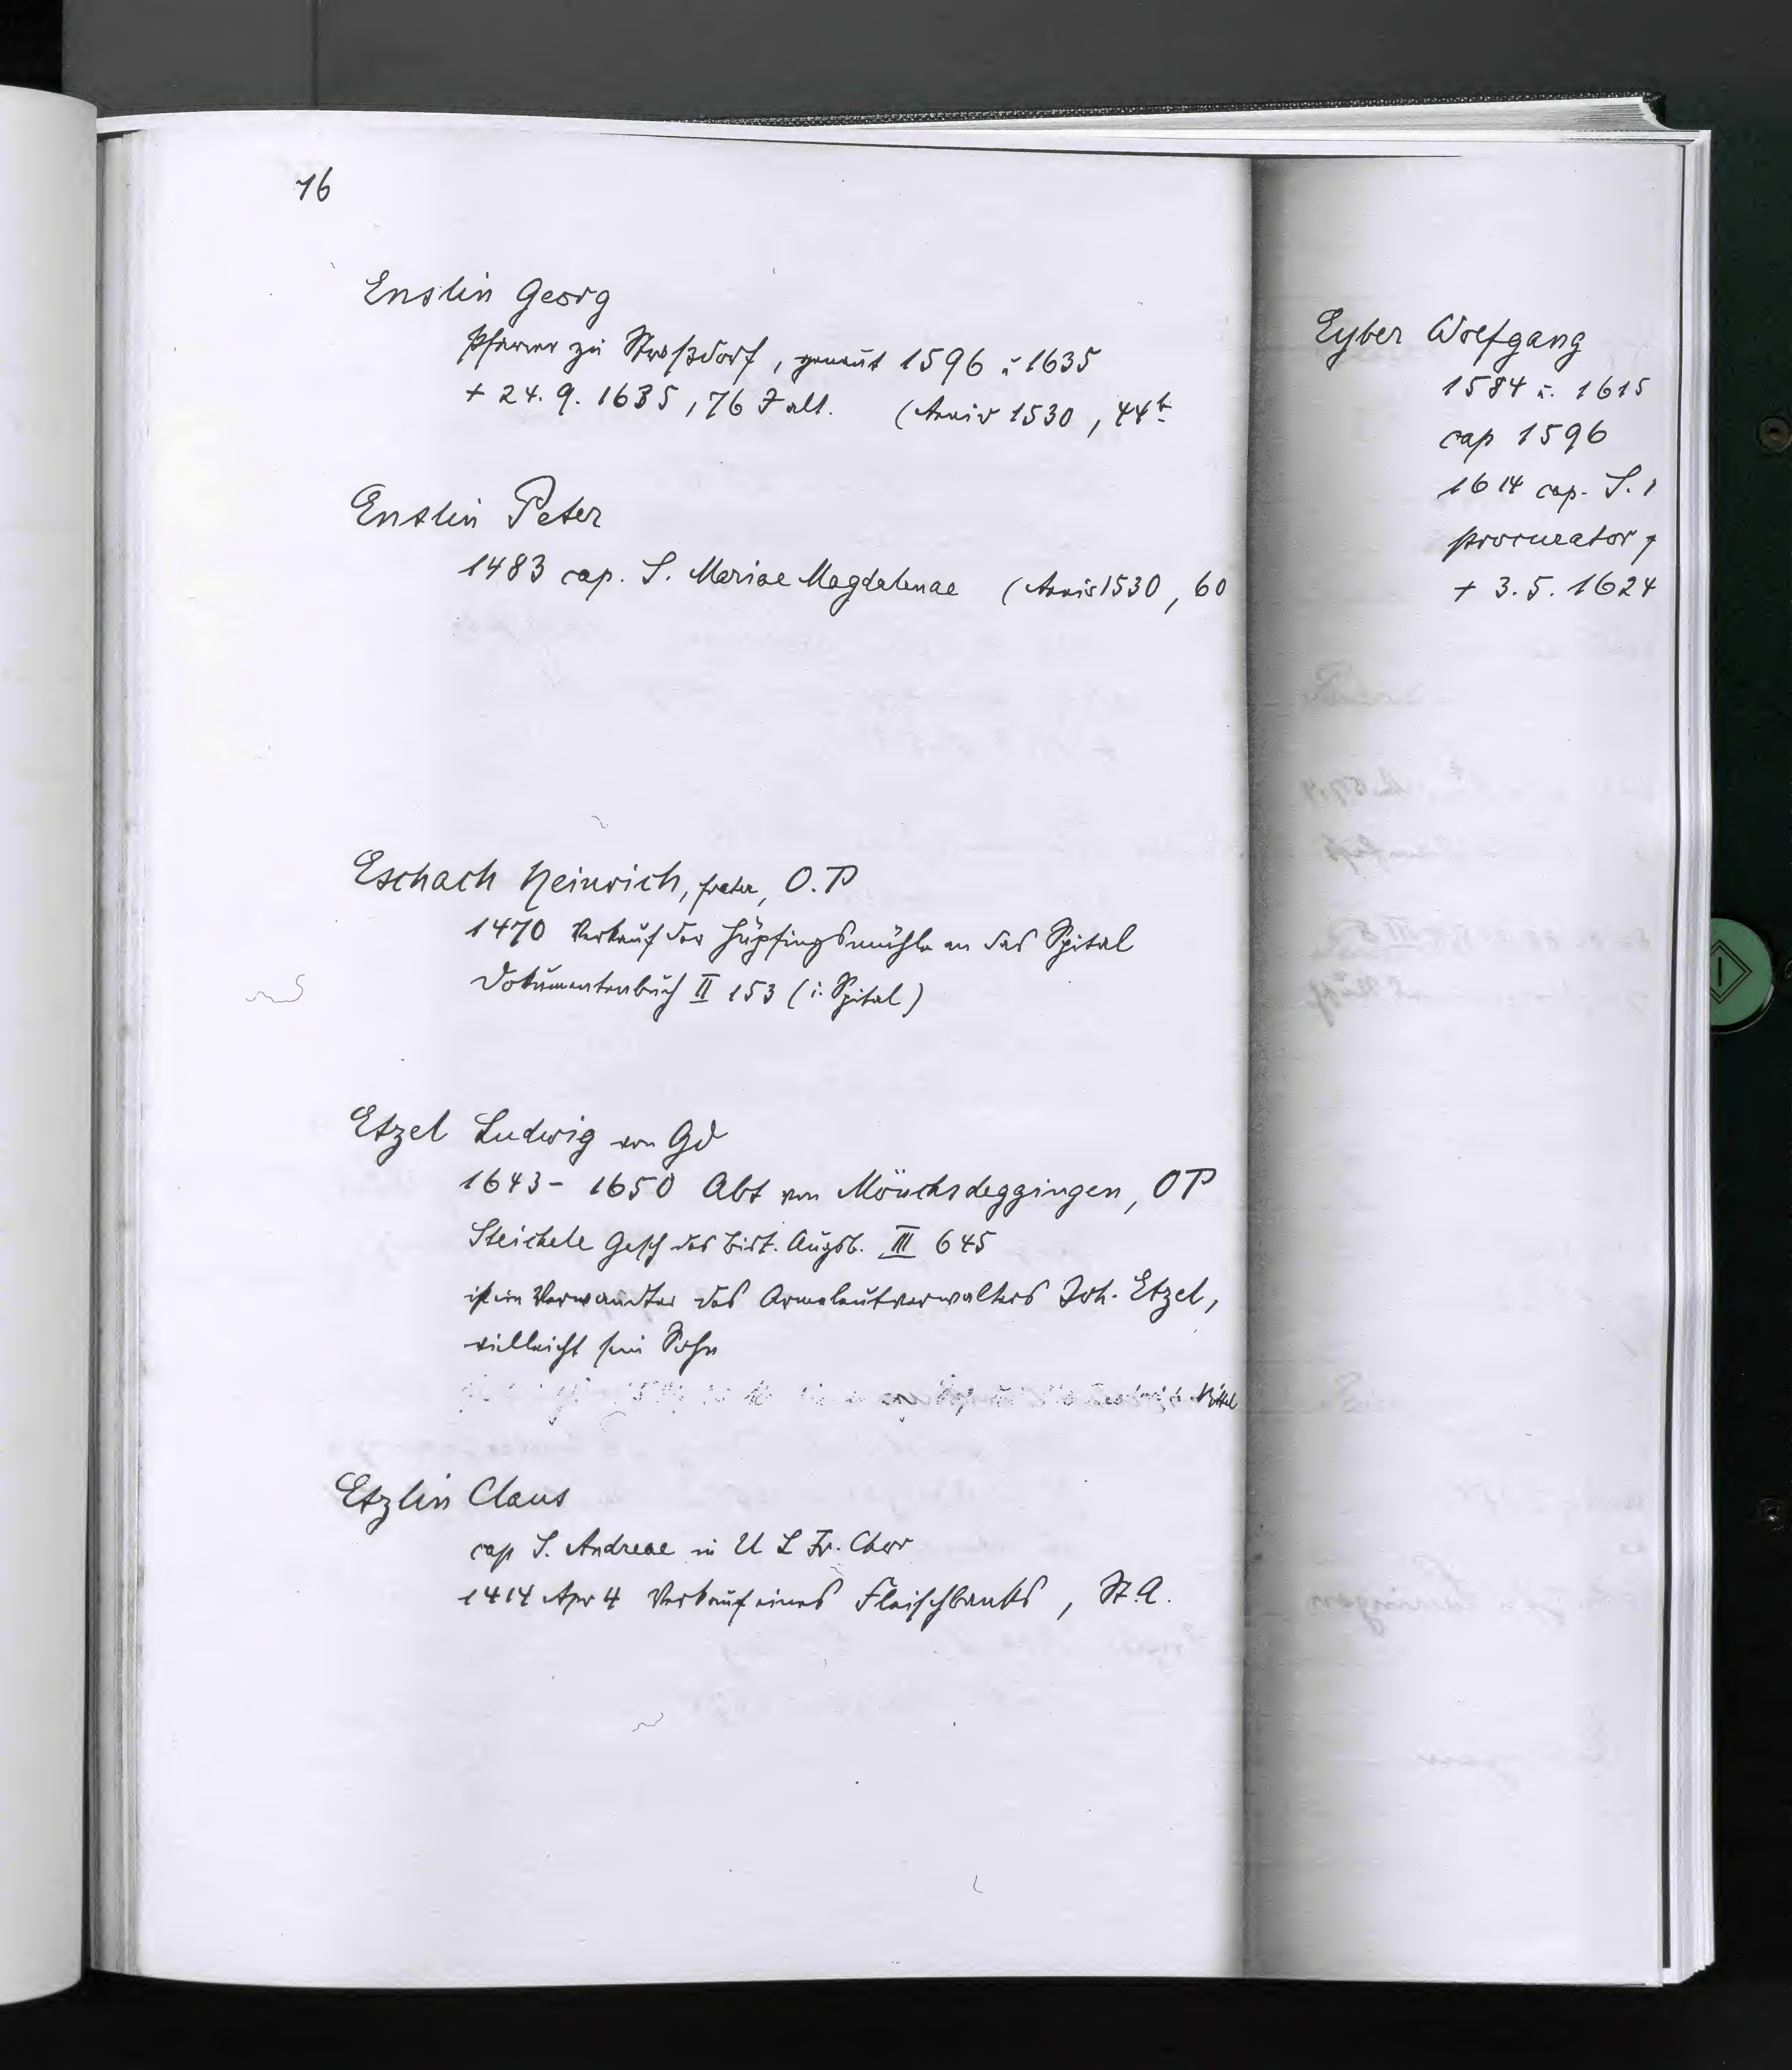 76
Enslin Georg
Pfarrer zu Straßdorf, genant 1596 u 1635
+ 24. 9. 1635, 76 J alt. (Anniv 1530, 44b
Enslin Peter
1483 cap. S. Mariae Magdalenae (Anniv 1530, 60
Eschach Heinrich, frater, O.P
1470 Verkauf der Hüpfingsmühle an das Spital
Dokumentenbuch II 153 (i. Spital)
Etzel Ludwig von Gd
1643 - 1650 Abt von Mönchsdeggingen, OP
Steichele Gesch des Bist. Augsb. III 645
ist ein Verwandter des Armeleutverwalters Joh. Etzel,
vielleicht sein Sohn
Etzlin Claus
cap S. Andreae in U L Fr. Chor
1414 Apr 4 Verkauf eines Fleischbanks, St.A.
Eyber Wolfgang
1584 u. 1615
cap 1596
1614 cap. S.
procurator
+ 3. 5. 1624